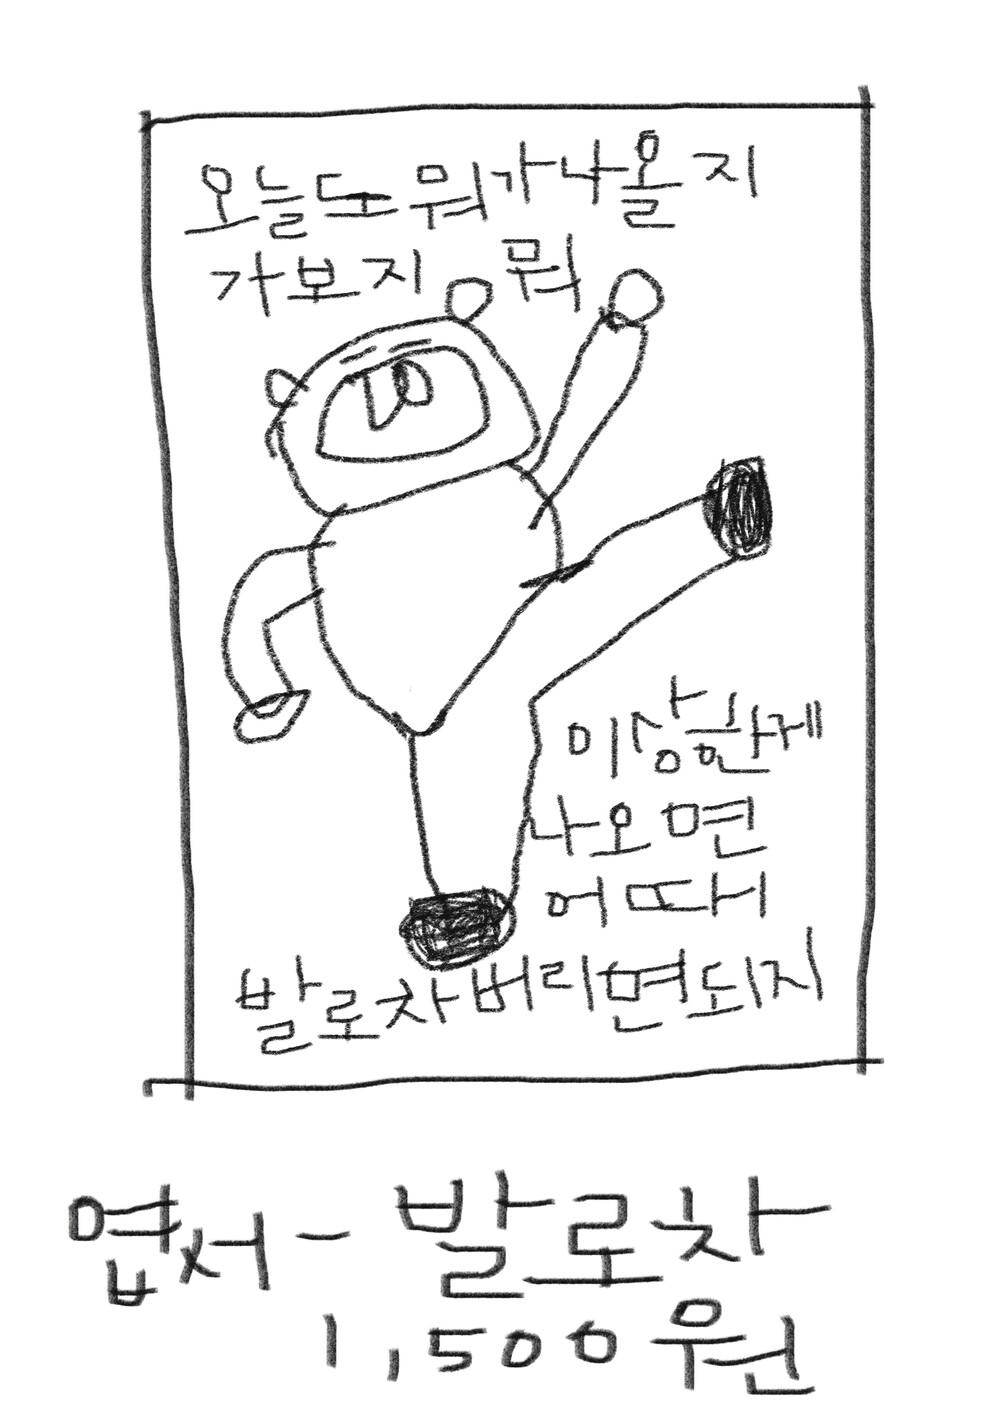 오늘도 뭐가 나올지
가보지 뭐
이상한게
나오면
어때
발로 차버리면 되지
엽서 - 발로차
1,500원